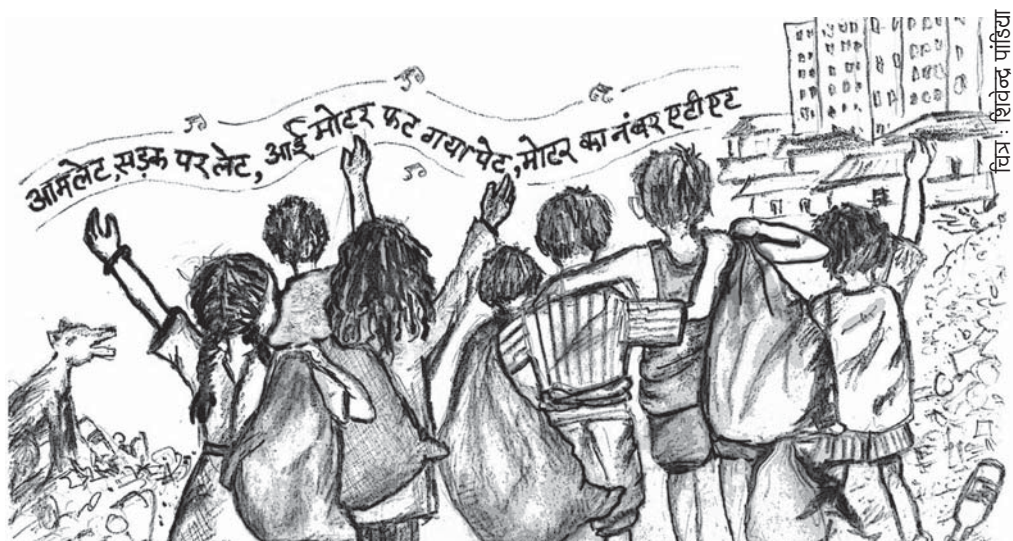 आमलेट, सड़क पर लेट, आई मोटर फट गया पेट, मोटर का नंबर एटीएट
चित्र : शिवेन्द्र पांडिया